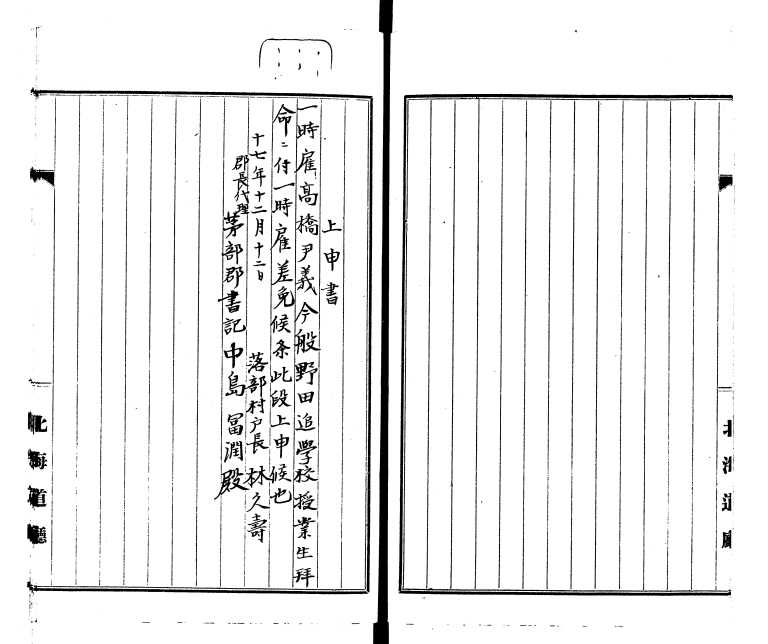 上申書
一時雇高橋尹義今般野田追学校授業生拝
命ニ付一時雇差免候条此段上申候也
十七年十二月十二日
落部村戸長 林久寿
郡長代理
茅部郡書記中島冨潤殿
北海道庁
北海道廳